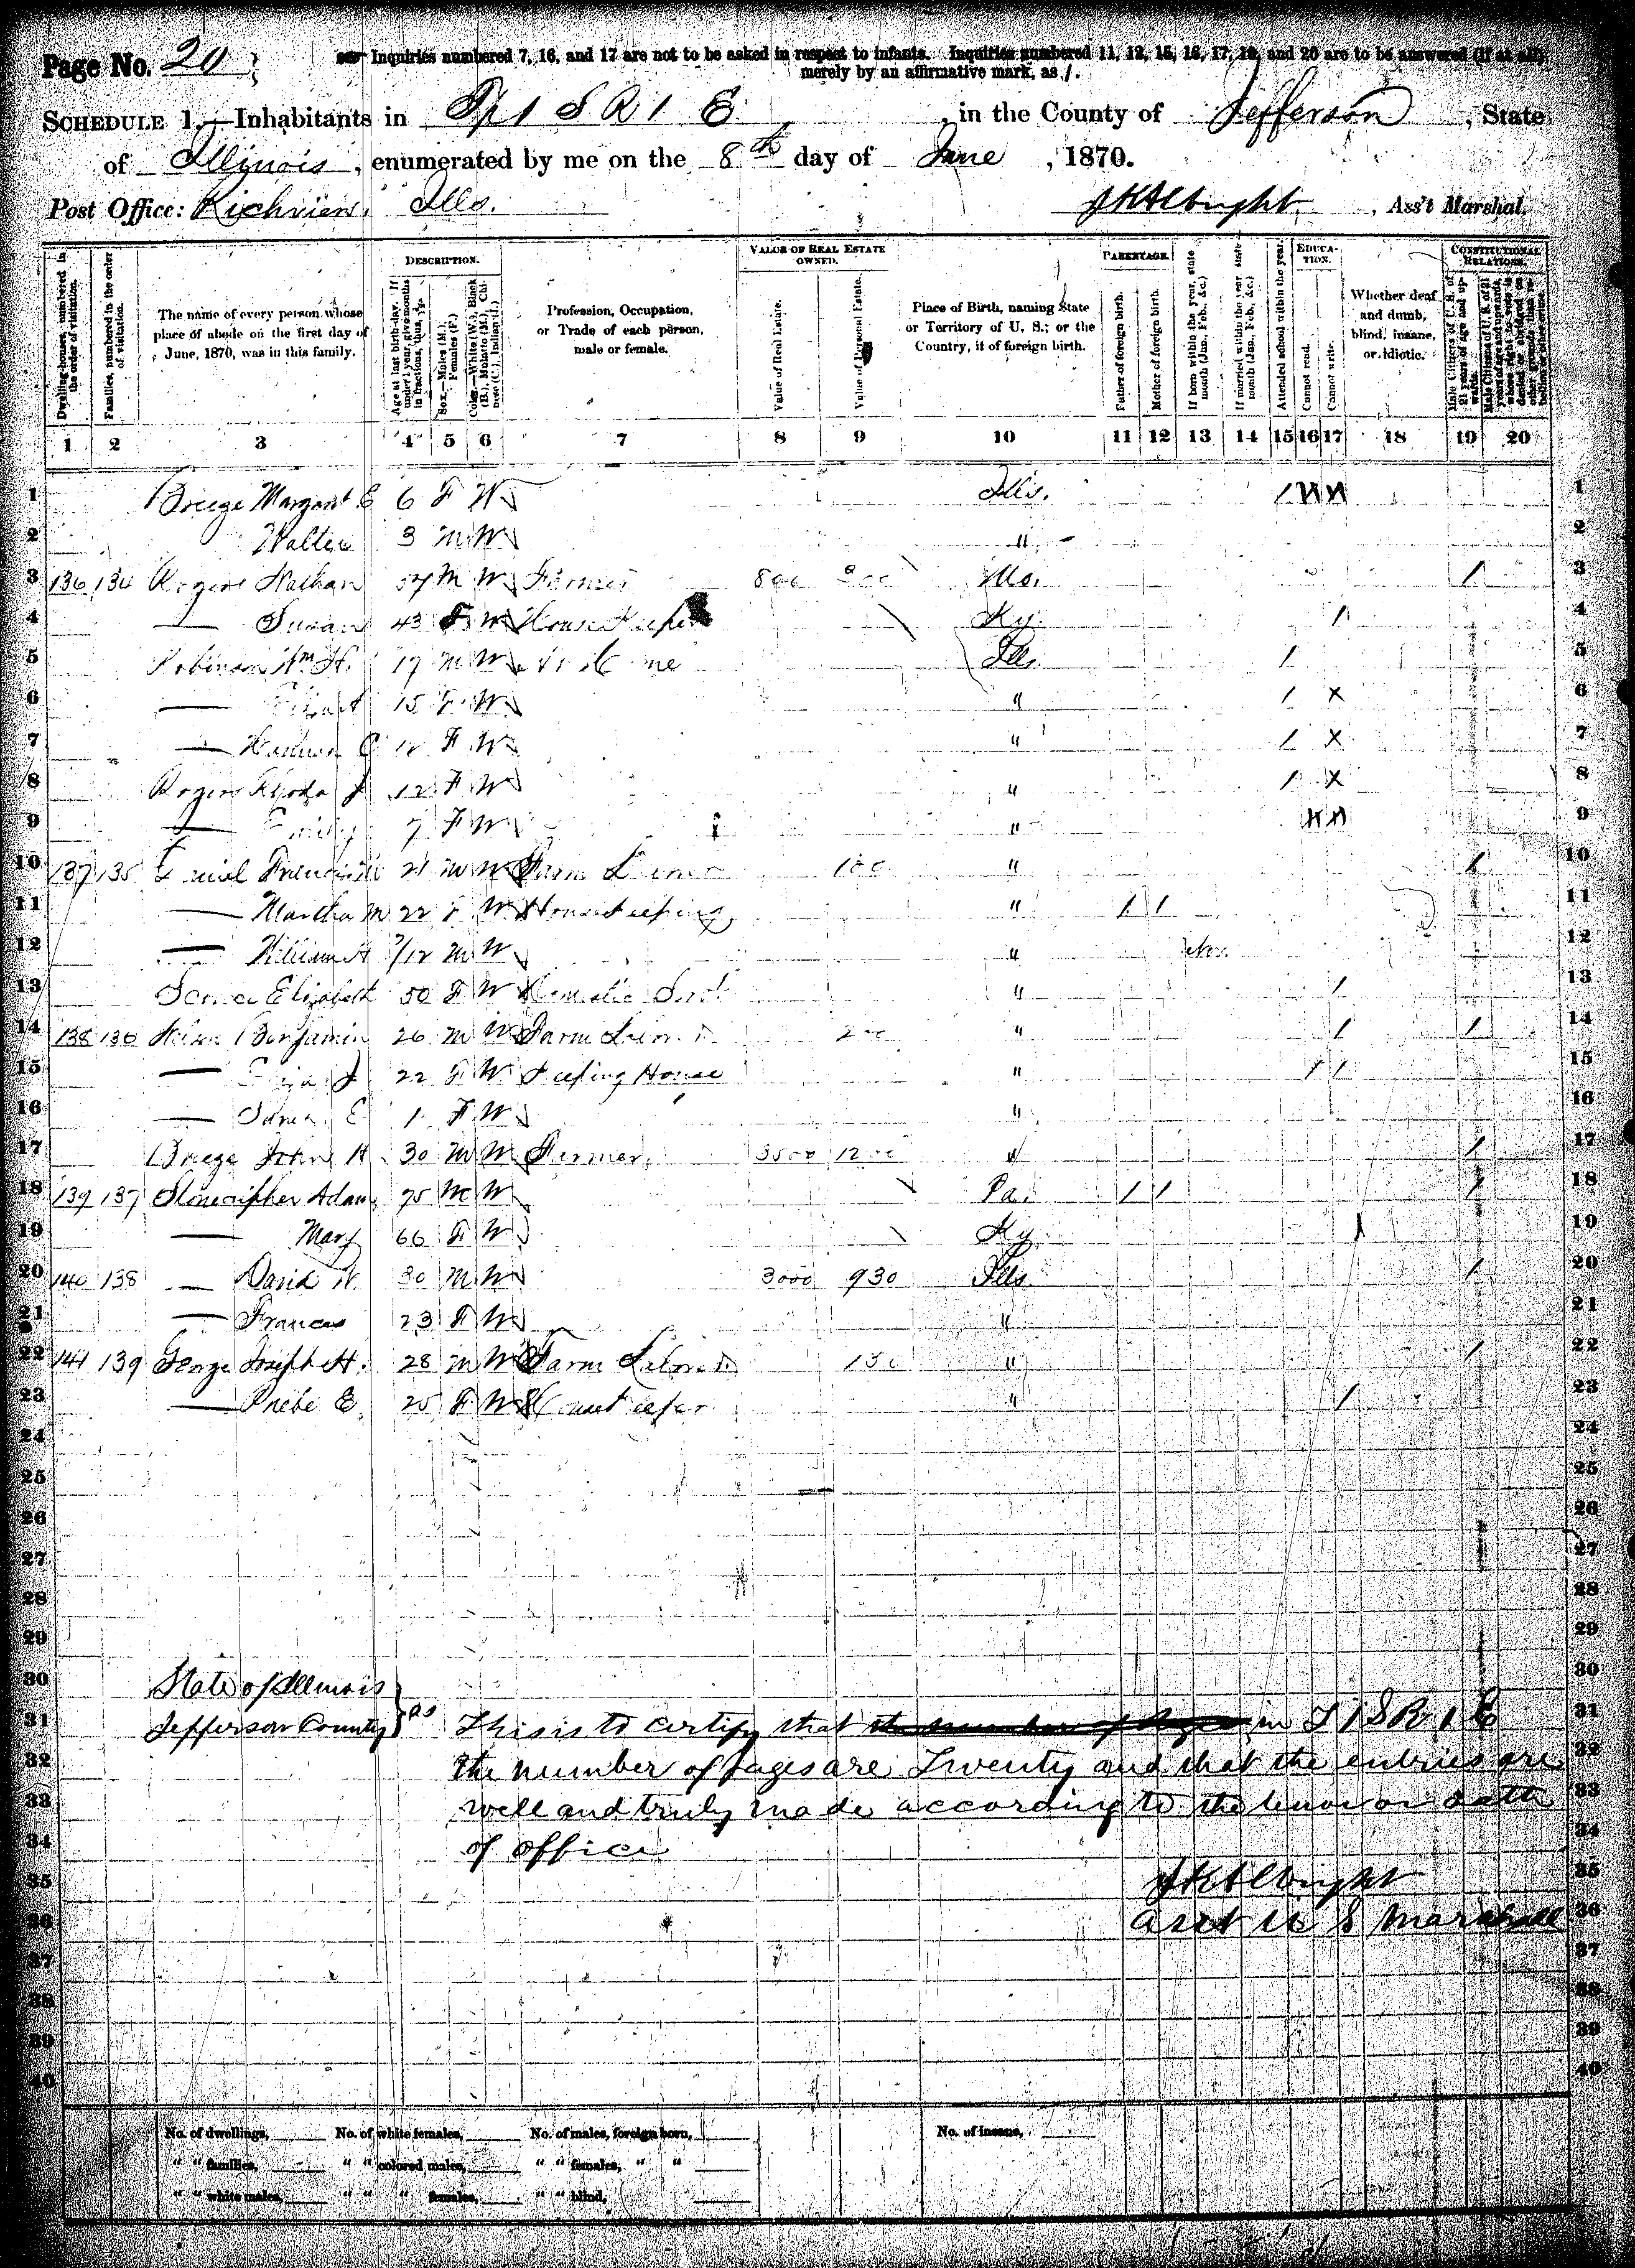 Page No. 20
Inquiries numbered 7, 16, and 17 are not to be asked in respect to infants. Inquiries numbered 11, 12, 15, 16, 17, 19, and 20 are to be answered (if at all)
merely by an affirmative mark, as /.
SCHEDULE 1.—Inhabitants in Tp 1 S R 1 E, in the County of Jefferson, State
of Illinois, enumerated by me on the 8th day of June, 1870.
Post Office: Richview, Ills. J K Albright, Ass't Marshal.
Dwelling-houses, numbered in the order of visitation.
Families, numbered in the order of visitation.
The name of every person whose place of abode on the first day of June, 1870, was in this family.
DESCRIPTION.
Age at last birth-day. If under 1 year, give months in fractions, thus,
Sex.—Males (M.), Females (F.)
Color.—White (W.), Black (B.), Mulatto (M.), Chinese (C.), Indian (I.)
Profession, Occupation, or Trade of each person, male or female.
VALUE OF REAL ESTATE OWNED.
Value of Real Estate.
Value of Personal Estate.
Place of Birth, naming State or Territory of U. S.; or the Country, if of foreign birth.
PARENTAGE.
Father of foreign birth.
Mother of foreign birth.
If born within the year, state month (Jan., Feb., &c.)
If married within the year, state month (Jan., Feb., &c.)
Attended school within the year.
EDUCATION.
Cannot read.
Cannot write.
Whether deaf and dumb, blind, insane, or idiotic.
CONSTITUTIONAL RELATIONS.
Male Citizens of U. S. of 21 years of age and upwards.
Male Citizens of U. S. of 21 years of age and upwards, whose right to vote is denied or abridged on other grounds than rebellion or other crime.
1 2 3 4 5 6 7 8 9 10 11 12 13 14 15 16 17 18 19 20
1 Breeze Margaret E 6 F W Ills. / 1
2 Walter 3 M W " 2
3 136 134 Rogers Nathan M W Farmer 800 Mo. / 3
4 — Susan 43 F W House Keeper Ky. / 4
5 Robinson Wm H. 17 M W Ills. / 5
6 — 15 F W " / X 6
7 — F W " / X 7
8 Rogers Rhoda J 12 F W " / X 8
9 — Emily 7 F W " 9
10 137 135 21 M W Farm " / 10
11 — Martha M 22 F W Housekeeping " / / 11
12 — William H 7/12 M W " Nov. 12
13 Elizabeth 50 F W Domestic Servt " / 13
14 138 136 Benjamin 26 M W Farm " / / 14
15 — Eliza J 22 F W Keeping House " / / 15
16 — Sarah E 1 F W " 16
17 Breeze John H 30 M W Farmer 3500 1200 " / 17
18 139 137 Stonecipher Adam 75 M W Pa. / / / 18
19 — Mary 66 F W Ky / 19
20 140 138 — David W. 30 M W 3000 930 Ills / 20
21 — Frances 23 F W " 21
22 141 139 George Joseph H. 28 M W Farm Laborer 150 " / 22
23 — Phebe E. 25 F W Housekeeper " / 23
24 24
25 25
26 26
27 27
28 28
29 29
30 State of Illinois 30
31 Jefferson County } ss This is to certify that the number of Pages in T 1 S R 1 E 31
32 the number of pages are Twenty and that the entries are 32
33 well and truly made according to the oath 33
34 of office 34
35 J K Albright 35
36 Asst U S Marshall 36
37 37
38 38
39 39
40 40
No. of dwellings, No. of white females, No. of males, foreign born, No. of insane,
" " families, " " colored males, " " females, " "
" " white males, " " " females, " " blind,